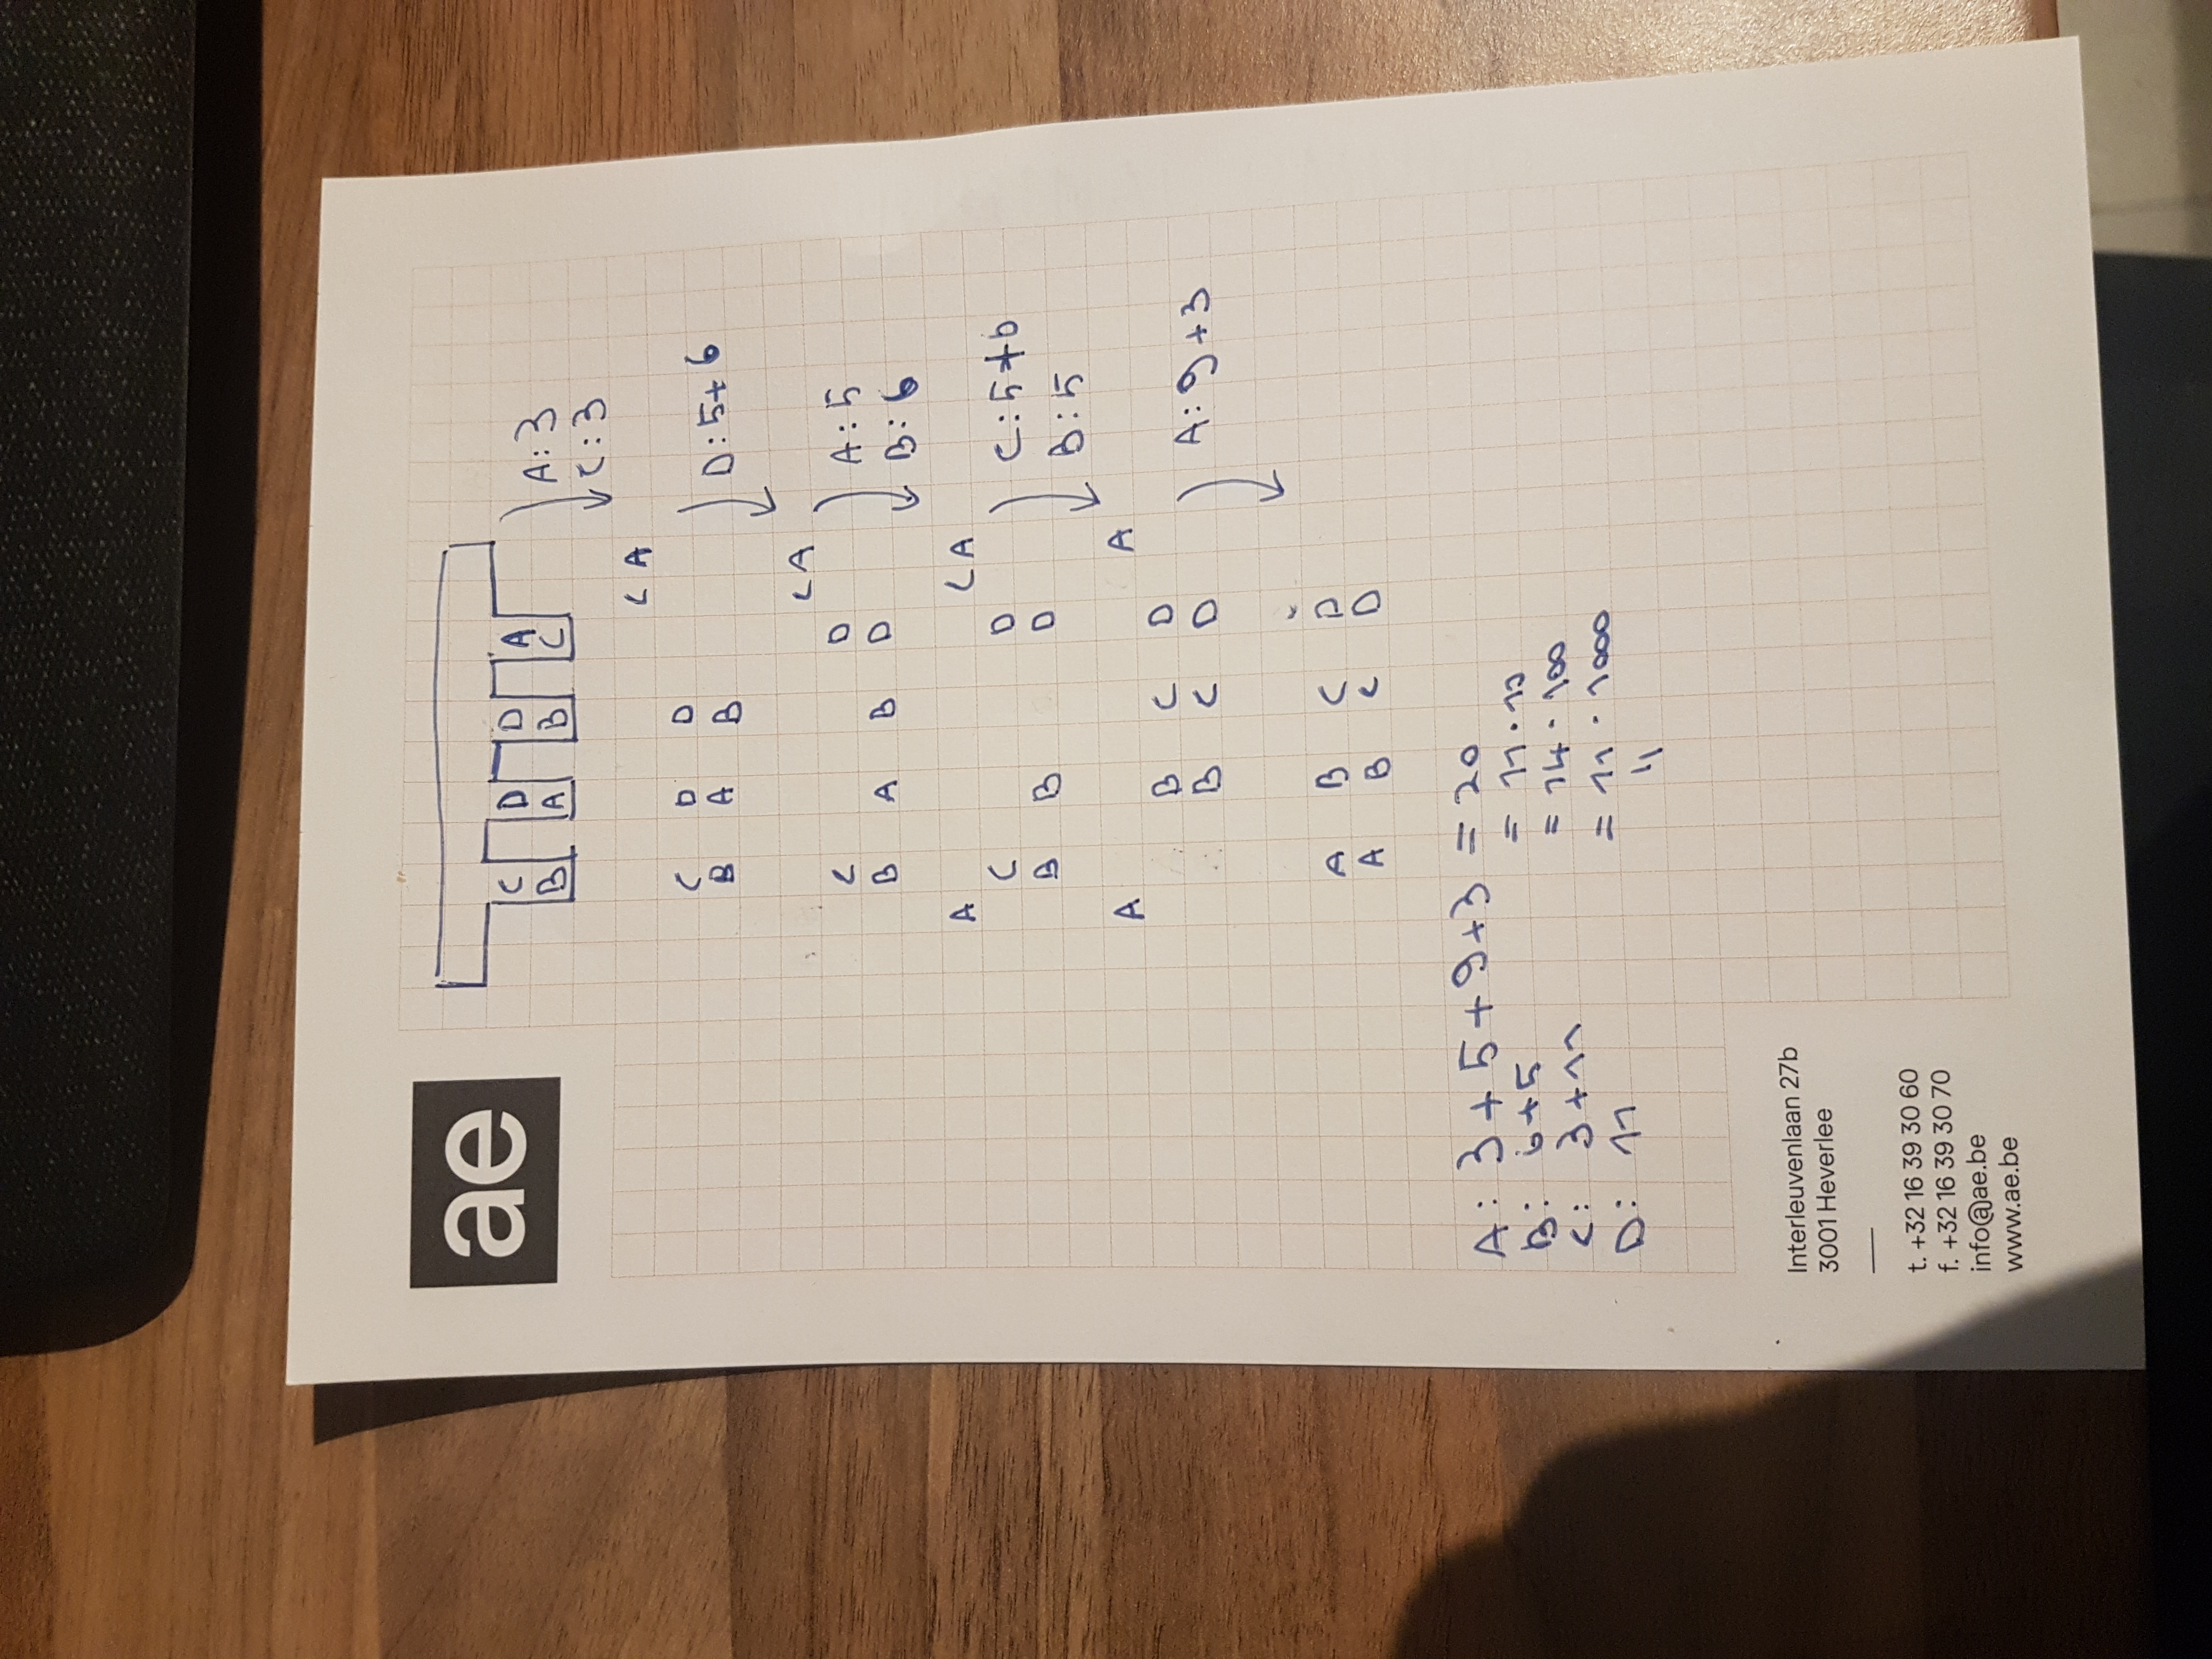 ae
C D D A
B A B C
A: 3
C: 3
C A
C D D
B A B
D: 5+6
C A
C D
B A B D
A: 5
B: 6
A C A
C D
B B D
C: 5+6
B: 5
A A
B C D
B C D
A: 9+3
A B C D
A B C D
A: 3+5+9+3 = 20
B: 6+5 = 11·10
C: 3+11 = 14·100
D: 11 = 11·1000
Interleuvenlaan 27b
3001 Heverlee
t. +32 16 39 30 60
f. +32 16 39 30 70
info@ae.be
www.ae.be